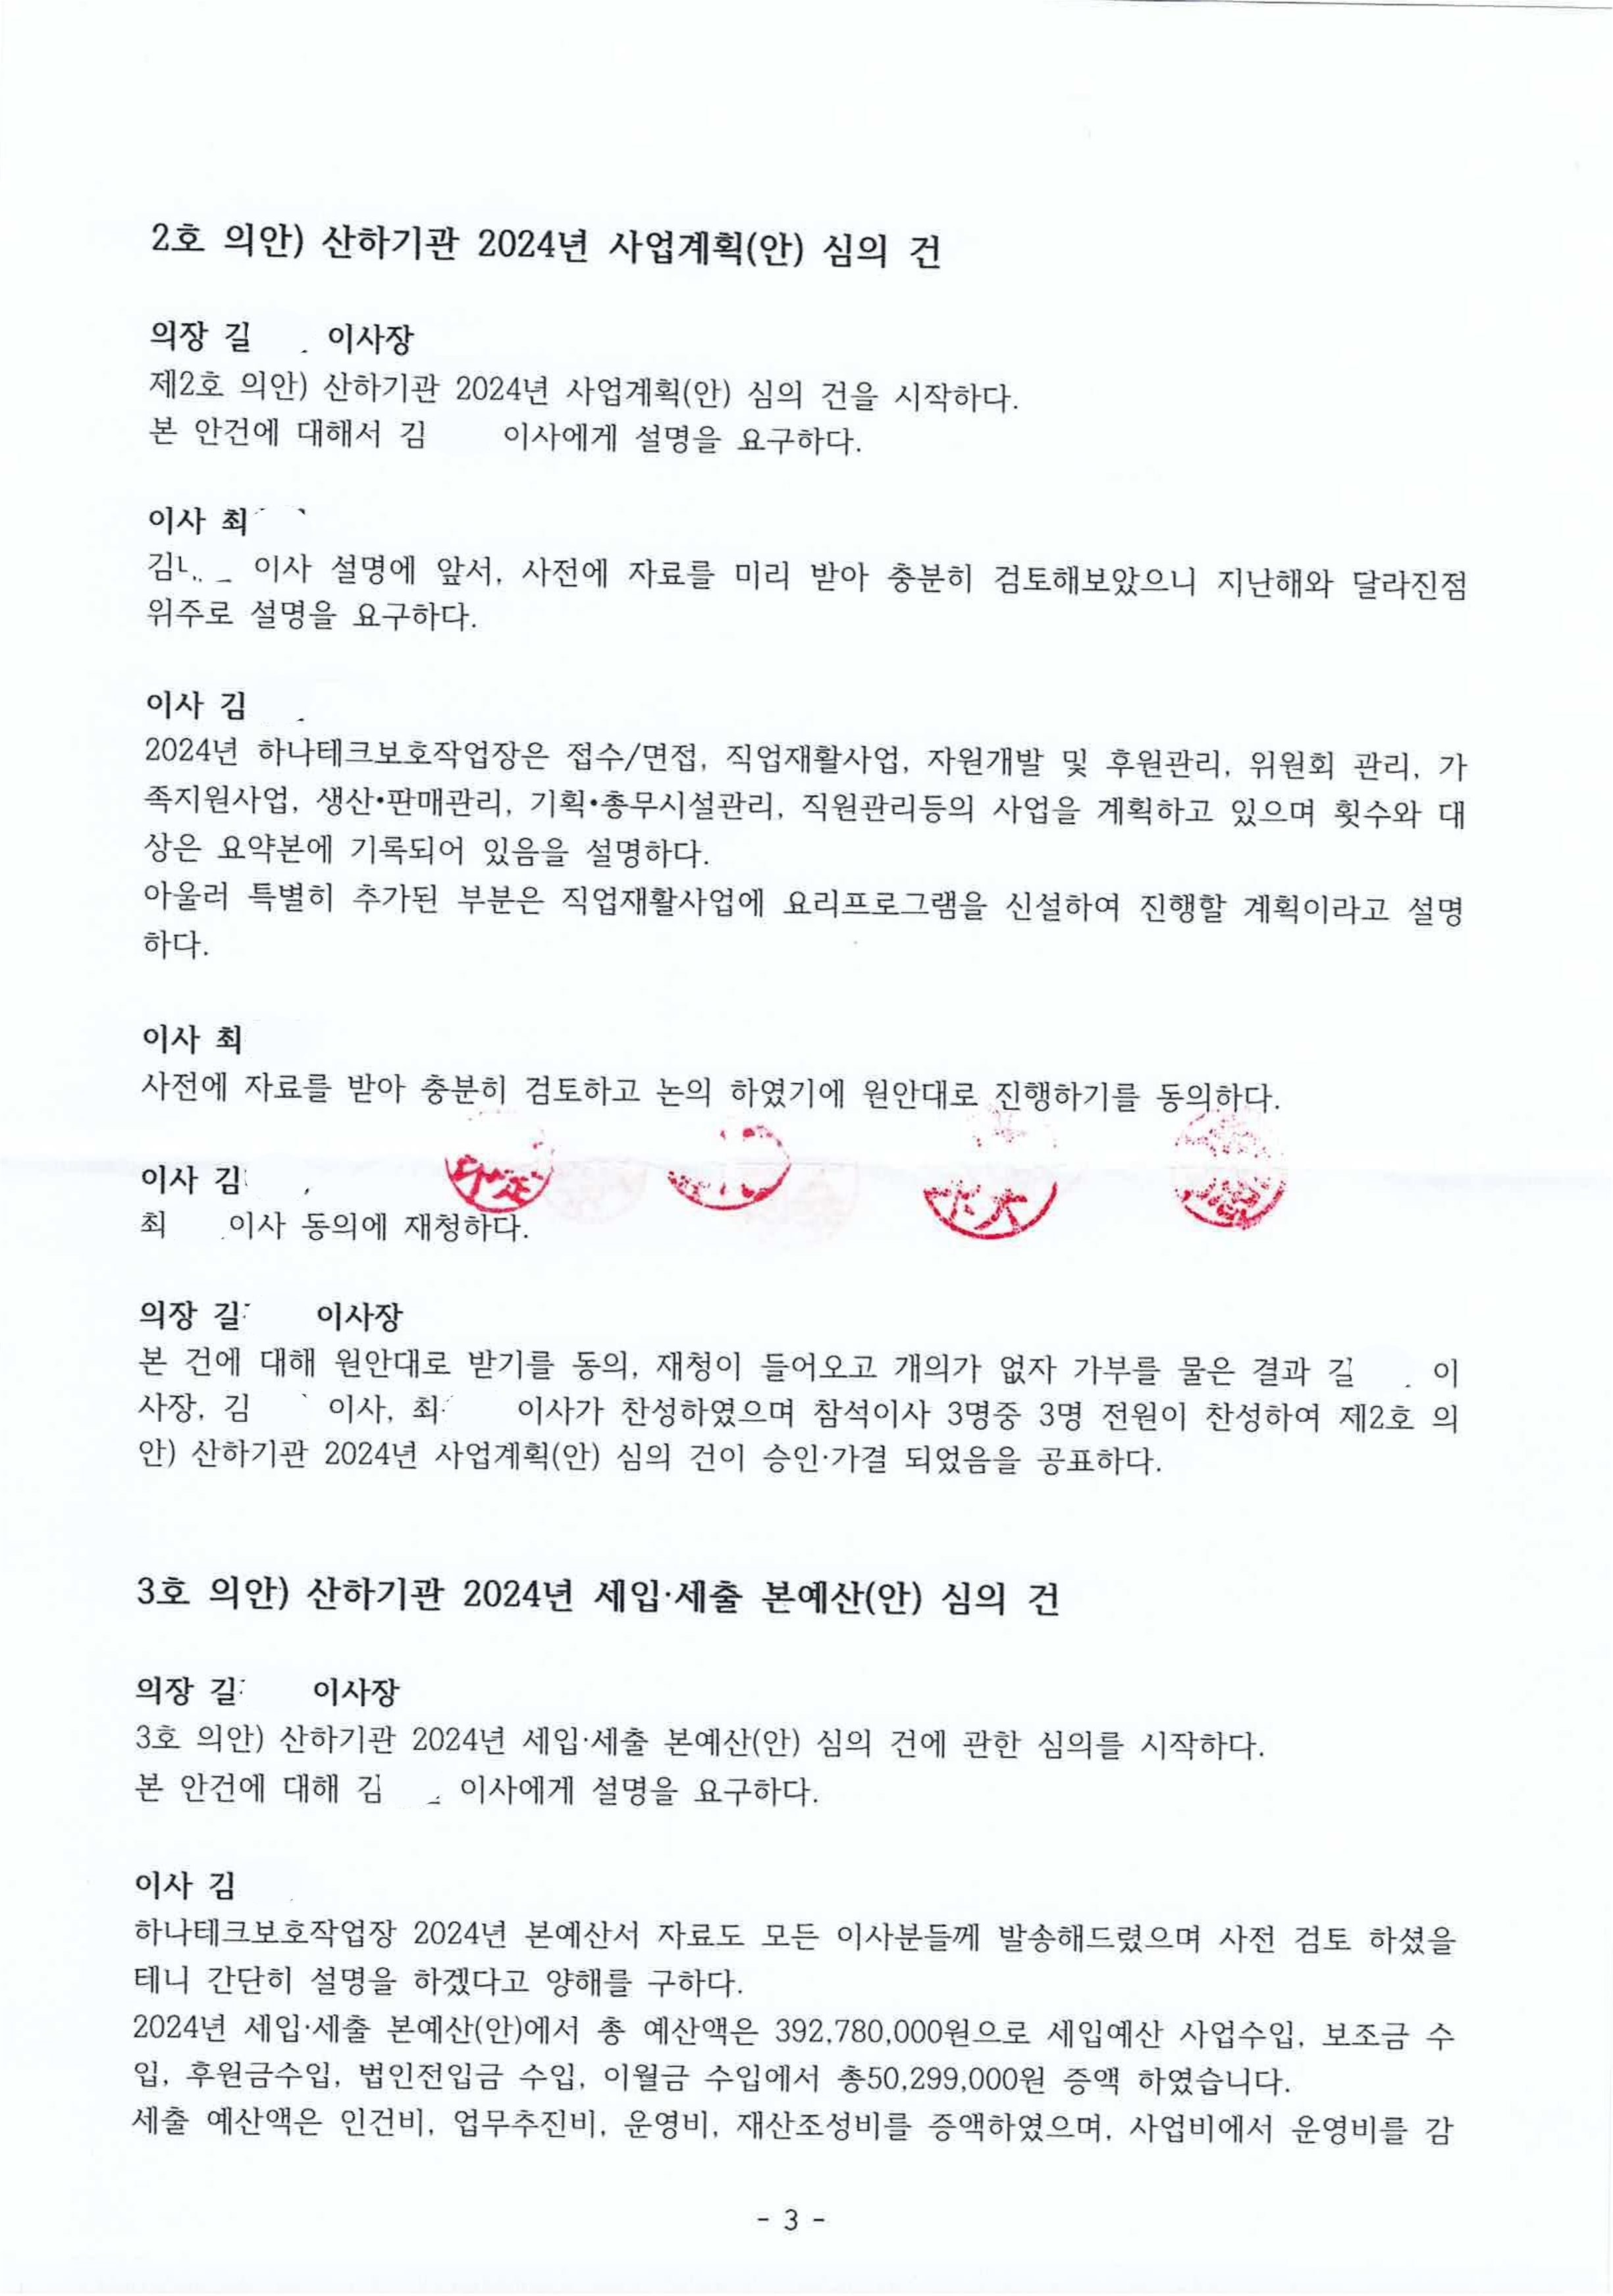 2호 의안) 산하기관 2024년 사업계획(안) 심의 건
의장 길 이사장
제2호 의안) 산하기관 2024년 사업계획(안) 심의 건을 시작하다.
본 안건에 대해서 김 이사에게 설명을 요구하다.
이사 최
김 이사 설명에 앞서, 사전에 자료를 미리 받아 충분히 검토해보았으니 지난해와 달라진점
위주로 설명을 요구하다.
이사 김
2024년 하나테크보호작업장은 접수/면접, 직업재활사업, 자원개발 및 후원관리, 위원회 관리, 가
족지원사업, 생산•판매관리, 기획•총무시설관리, 직원관리등의 사업을 계획하고 있으며 횟수와 대
상은 요약본에 기록되어 있음을 설명하다.
아울러 특별히 추가된 부분은 직업재활사업에 요리프로그램을 신설하여 진행할 계획이라고 설명
하다.
이사 최
사전에 자료를 받아 충분히 검토하고 논의 하였기에 원안대로 진행하기를 동의하다.
이사 김
최 이사 동의에 재청하다.
의장 길 이사장
본 건에 대해 원안대로 받기를 동의, 재청이 들어오고 개의가 없자 가부를 물은 결과 길 이
사장, 김 이사, 최 이사가 찬성하였으며 참석이사 3명중 3명 전원이 찬성하여 제2호 의
안) 산하기관 2024년 사업계획(안) 심의 건이 승인·가결 되었음을 공표하다.
3호 의안) 산하기관 2024년 세입·세출 본예산(안) 심의 건
의장 길 이사장
3호 의안) 산하기관 2024년 세입·세출 본예산(안) 심의 건에 관한 심의를 시작하다.
본 안건에 대해 김 이사에게 설명을 요구하다.
이사 김
하나테크보호작업장 2024년 본예산서 자료도 모든 이사분들께 발송해드렸으며 사전 검토 하셨을
테니 간단히 설명을 하겠다고 양해를 구하다.
2024년 세입·세출 본예산(안)에서 총 예산액은 392,780,000원으로 세입예산 사업수입, 보조금 수
입, 후원금수입, 법인전입금 수입, 이월금 수입에서 총50,299,000원 증액 하였습니다.
세출 예산액은 인건비, 업무추진비, 운영비, 재산조성비를 증액하였으며, 사업비에서 운영비를 감
- 3 -